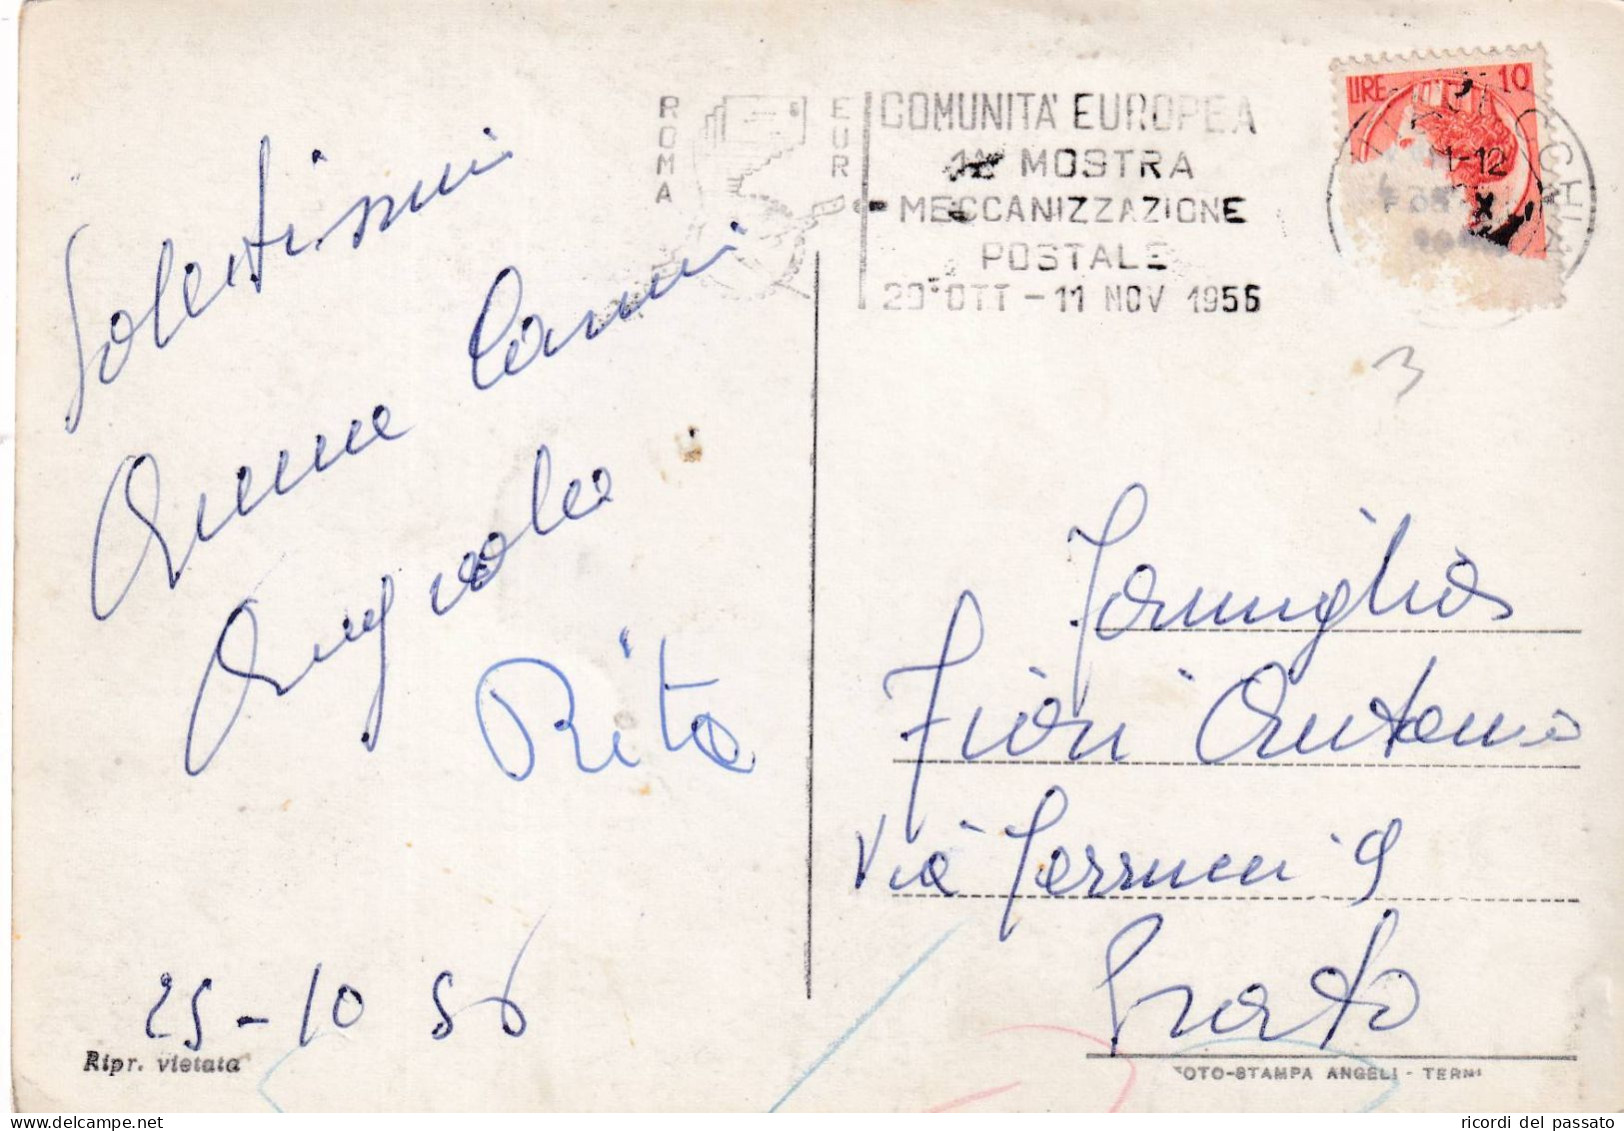 ROMA
EUR
COMUNITÀ EUROPEA
1ª MOSTRA
MECCANIZZAZIONE
POSTALE
29 OTT - 11 NOV 1956
LIRE 10
3
Rita
25-10 56
Ripr. vietata
Famiglia
Fiori Antonio
Via Ferrucci 9
Prato
FOTO-STAMPA ANGELI - TERNI
ricordi del passato